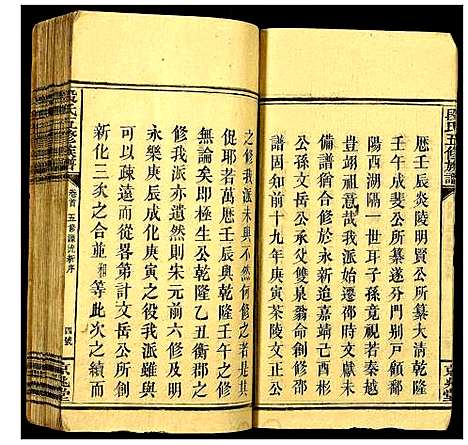 段氏五修族譜
曆壬辰炎陵明賢公所纂大清乾隆
壬午成斐公所纂遂分門別戶顧鄱
陽西湖隔一世耳子孫竟視若秦越
豈翊祖意哉始遷邵時文政公遷新
時猶稱合修於永新迨嘉靖己酉才
公孫文岳公承父雙泉翁命創修新
譜固知前十九年庚寅茶陵文正公
之修我派未與不然何修之
促耶若萬曆壬辰與乾隆壬午之修
無論矣即極生公乾隆乙丑衡郡之
修我派亦遺然則宋元前六修及明
永樂庚辰成化庚寅之役我派雖與
可以疎遠而從畧第計文岳公所創
新化三次之合並和等此次之續而
段氏五修族譜
卷首
五修譜流新序
四號
京兆堂
京兆堂